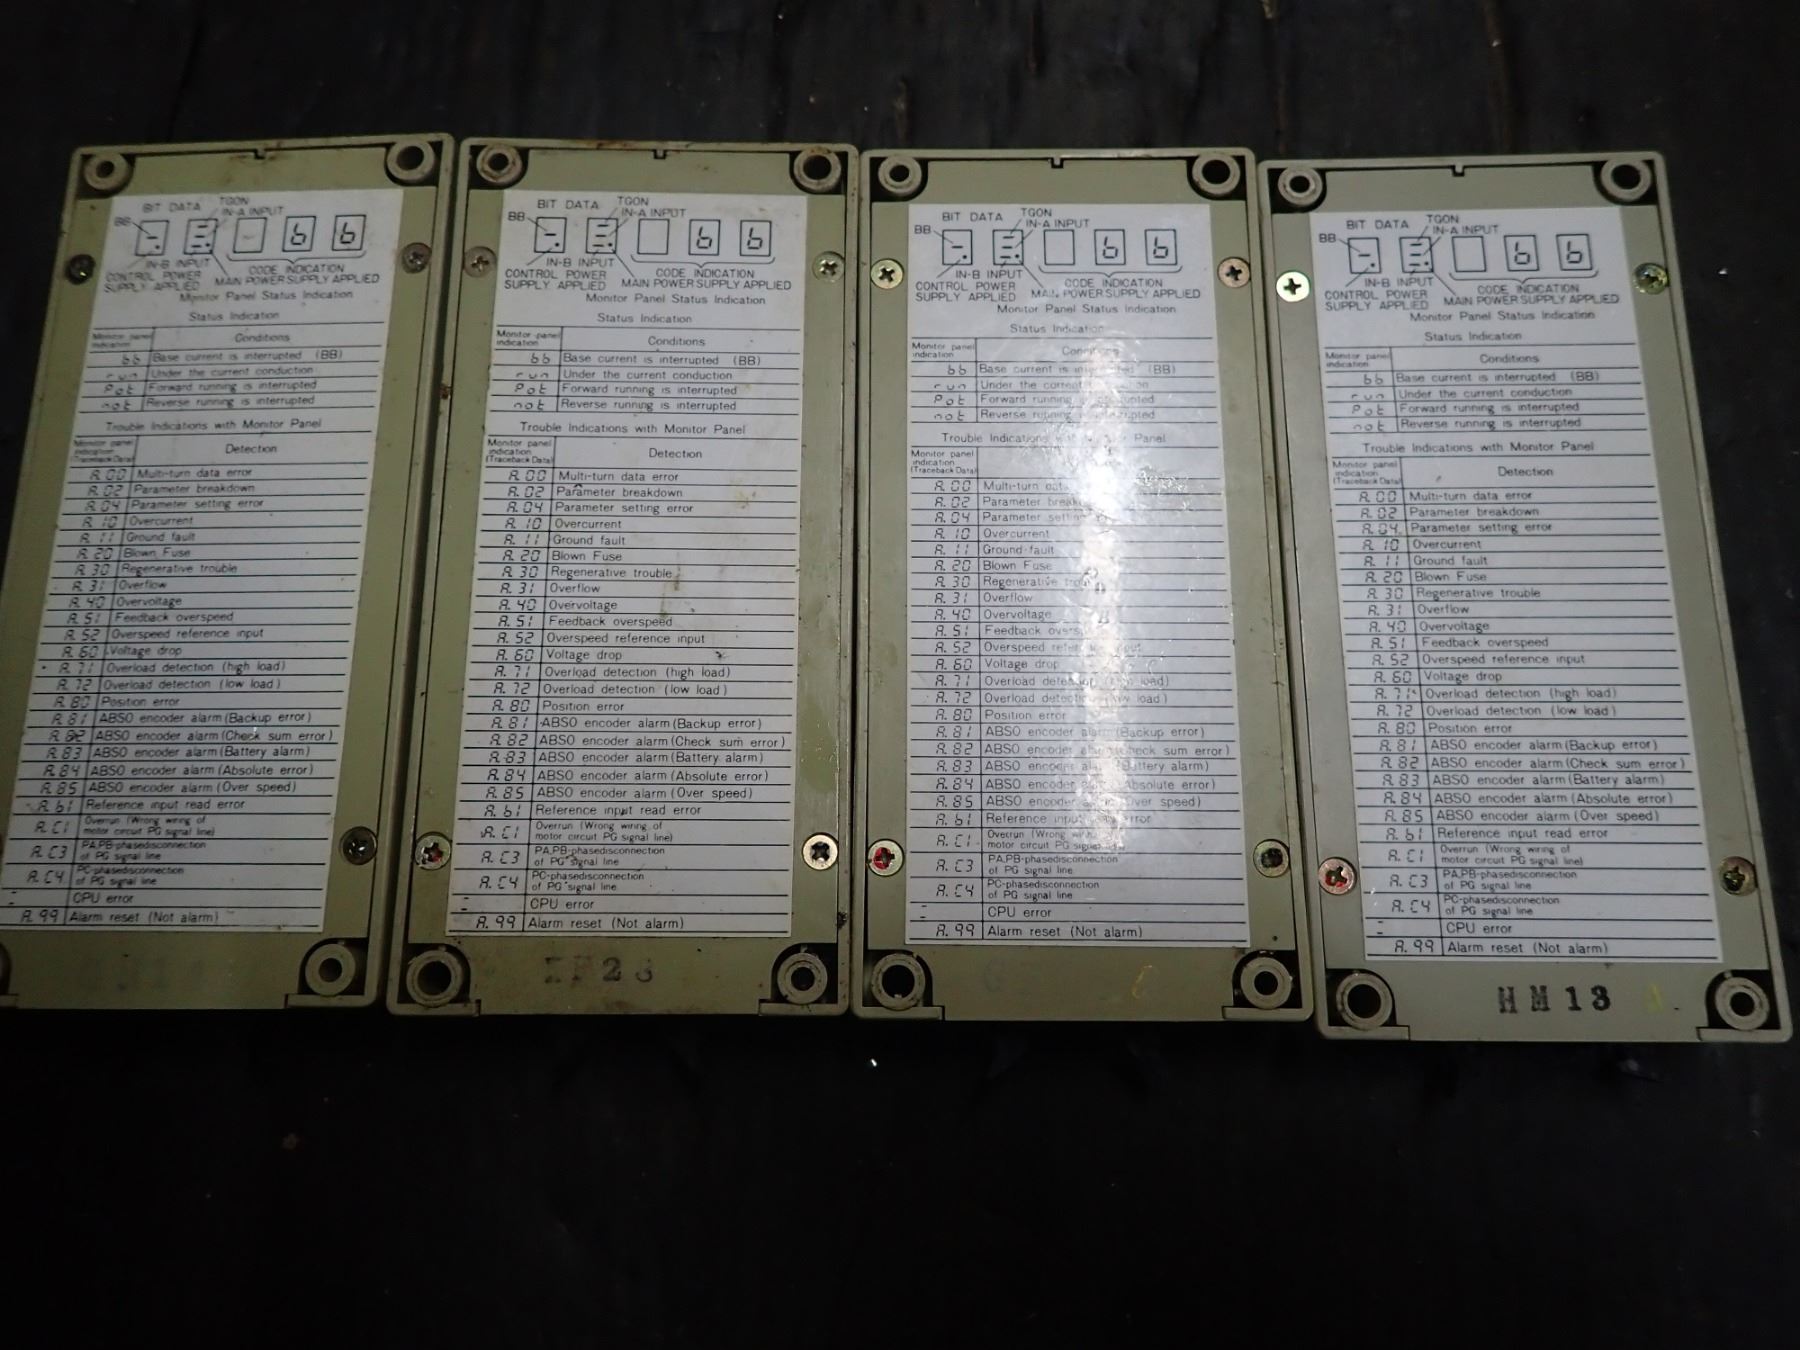 BIT DATA TGON
BB IN-A INPUT
b b
IN-B INPUT
CONTROL POWER CODE INDICATION
SUPPLY APPLIED MAIN POWER SUPPLY APPLIED
Monitor Panel Status Indication
Status Indication
Monitor panel indication Conditions
bb Base current is interrupted (BB)
run Under the current conduction
Pot Forward running is interrupted
not Reverse running is interrupted
Trouble Indications with Monitor Panel
Monitor panel indication (Traceback Data) Detection
A.00 Multi-turn data error
A.02 Parameter breakdown
A.04 Parameter setting error
A.10 Overcurrent
A.11 Ground fault
A.20 Blown Fuse
A.30 Regenerative trouble
A.31 Overflow
A.40 Overvoltage
A.51 Feedback overspeed
A.52 Overspeed reference input
A.60 Voltage drop
A.71 Overload detection (high load)
A.72 Overload detection (low load)
A.80 Position error
A.81 ABSO encoder alarm (Backup error)
A.82 ABSO encoder alarm (Check sum error)
A.83 ABSO encoder alarm (Battery alarm)
A.84 ABSO encoder alarm (Absolute error)
A.85 ABSO encoder alarm (Over speed)
A.b1 Reference input read error
A.C1 Overrun (Wrong wiring of
motor circuit PG signal line)
A.C3 PA,PB-phasedisconnection
of PG signal line
A.C4 PC-phasedisconnection
of PG signal line
CPU error
A.99 Alarm reset (Not alarm)
BIT DATA TGON
BB IN-A INPUT
b b
IN-B INPUT
CONTROL POWER CODE INDICATION
SUPPLY APPLIED MAIN POWER SUPPLY APPLIED
Monitor Panel Status Indication
Status Indication
Monitor panel indication Conditions
bb Base current is interrupted (BB)
run Under the current conduction
Pot Forward running is interrupted
not Reverse running is interrupted
Trouble Indications with Monitor Panel
Monitor panel indication (Traceback Data) Detection
A.00 Multi-turn data error
A.02 Parameter breakdown
A.04 Parameter setting error
A.10 Overcurrent
A.11 Ground fault
A.20 Blown Fuse
A.30 Regenerative trouble
A.31 Overflow
A.40 Overvoltage
A.51 Feedback overspeed
A.52 Overspeed reference input
A.60 Voltage drop
A.71 Overload detection (high load)
A.72 Overload detection (low load)
A.80 Position error
A.81 ABSO encoder alarm (Backup error)
A.82 ABSO encoder alarm (Check sum error)
A.83 ABSO encoder alarm (Battery alarm)
A.84 ABSO encoder alarm (Absolute error)
A.85 ABSO encoder alarm (Over speed)
A.b1 Reference input read error
A.C1 Overrun (Wrong wiring of
motor circuit PG signal line)
A.C3 PA,PB-phasedisconnection
of PG signal line
A.C4 PC-phasedisconnection
of PG signal line
CPU error
A.99 Alarm reset (Not alarm)
BIT DATA TGON
BB IN-A INPUT
b b
IN-B INPUT
CONTROL POWER CODE INDICATION
SUPPLY APPLIED MAIN POWER SUPPLY APPLIED
Monitor Panel Status Indication
Status Indication
Monitor panel indication Conditions
bb Base current is interrupted (BB)
run Under the current conduction
Pot Forward running is interrupted
not Reverse running is interrupted
Trouble Indications with Monitor Panel
Monitor panel indication (Traceback Data)
A.00 Multi-turn data
A.02 Parameter breakdown
A.04 Parameter setting
A.10 Overcurrent
A.11 Ground fault
A.20 Blown Fuse
A.30 Regenerative trouble
A.31 Overflow
A.40 Overvoltage
A.51 Feedback overspeed
A.52 Overspeed reference input
A.60 Voltage drop
A.71 Overload detection (high load)
A.72 Overload detection (low load)
A.80 Position error
A.81 ABSO encoder alarm (Backup error)
A.82 ABSO encoder alarm (Check sum error)
A.83 ABSO encoder alarm (Battery alarm)
A.84 ABSO encoder alarm (Absolute error)
A.85 ABSO encoder alarm (Over speed)
A.b1 Reference input error
A.C1 Overrun (Wrong wiring of
motor circuit PG signal line)
A.C3 PA,PB-phasedisconnection
of PG signal line
A.C4 PC-phasedisconnection
of PG signal line
CPU error
A.99 Alarm reset (Not alarm)
BIT DATA TGON
BB IN-A INPUT
b b
IN-B INPUT
CONTROL POWER CODE INDICATION
SUPPLY APPLIED MAIN POWER SUPPLY APPLIED
Monitor Panel Status Indication
Status Indication
Monitor panel indication Conditions
bb Base current is interrupted (BB)
run Under the current conduction
Pot Forward running is interrupted
not Reverse running is interrupted
Trouble Indications with Monitor Panel
Monitor panel indication (Traceback Data) Detection
A.00 Multi-turn data error
A.02 Parameter breakdown
A.04 Parameter setting error
A.10 Overcurrent
A.11 Ground fault
A.20 Blown Fuse
A.30 Regenerative trouble
A.31 Overflow
A.40 Overvoltage
A.51 Feedback overspeed
A.52 Overspeed reference input
A.60 Voltage drop
A.71 Overload detection (high load)
A.72 Overload detection (low load)
A.80 Position error
A.81 ABSO encoder alarm (Backup error)
A.82 ABSO encoder alarm (Check sum error)
A.83 ABSO encoder alarm (Battery alarm)
A.84 ABSO encoder alarm (Absolute error)
A.85 ABSO encoder alarm (Over speed)
A.b1 Reference input read error
A.C1 Overrun (Wrong wiring of
motor circuit PG signal line)
A.C3 PA,PB-phasedisconnection
of PG signal line
A.C4 PC-phasedisconnection
of PG signal line
CPU error
A.99 Alarm reset (Not alarm)
HM13